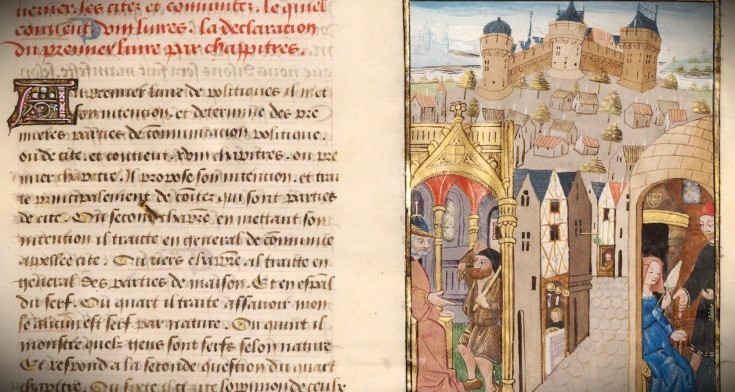 uerner. les citez et communitez. le quel
contient .viii. liures. la declaration
du premier liure par chappitres.
Au premier liure de politiques il met
son intention. et determine des pre
mieres parties de communication politique.
ou de cite. et contient chapitres. ou pre
mier chapitre. Il propose son intention. et trai
te principalement de qui sont parties
de cite. Ou second chapitre en mettant son
intention il traitte en general de communite
appellee cite. Ou tiers chapitre al traitte en
general des parties de maison. Et en espal
du serf. Ou quart il traite assauoir mon
se aucun est serf par nature. Ou quint il
monstre quelz gens sont serfs selon nature
Et respond a la seconde question du quart
chapitre. Ou sixte il